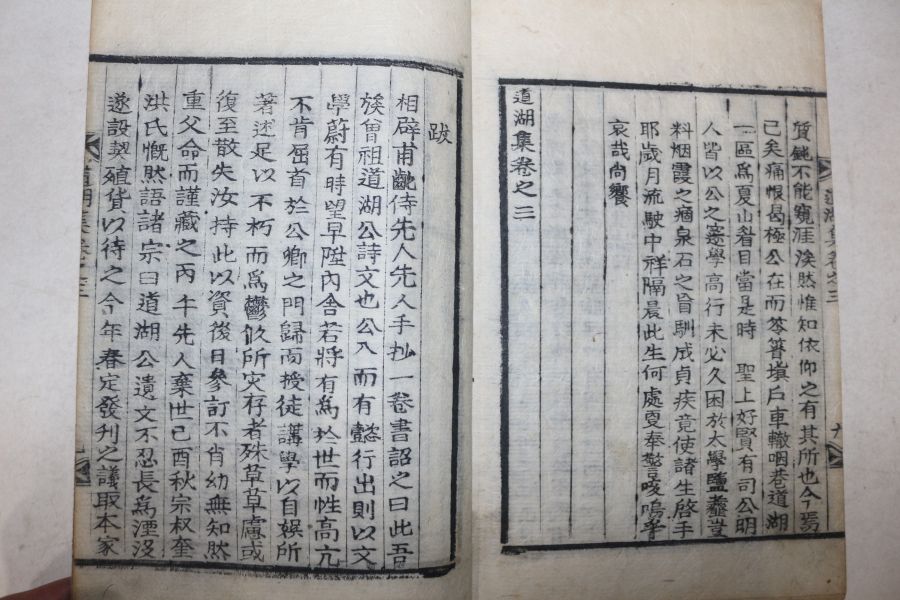 質鈍不能窺涯涘然惟知依仰之有其所也今焉
已矣痛恨曷極公在而笭箐塡戶車轍咽巷道湖
一區爲夏山眉目當是時 聖上好賢有司公明
人皆以公之邃學高行未必久困於太學鹽虀豈
料烟霞之痼泉石之盲馴成貞疾竟使諸生啓手
耶歲月流駛中祥隔晨此生何處更奉警咳嗚乎
哀哉尙饗
道湖集卷之三
道湖集卷之三
跋
相辟甫齔侍先人先人手抄一卷書詔之曰此吾
族曾祖道湖公詩文也公入而有懿行出則以文
學蔚有時望早陞內舍若將有爲於世而性高亢
不肯屈首於公卿之門歸而授徒講學以自娛所
著述足以不朽而爲鬱攸所灾存者殊草草慮或
復至散失汝持此以資後日參訂不肖幼無知然
重父命而謹藏之丙午先人棄世己酉秋宗叔奎
洪氏慨然語諸宗曰道湖公遺文不忍長爲湮沒
遂設契殖貨以待之今年春定發刊之議取本家
道湖集卷之三